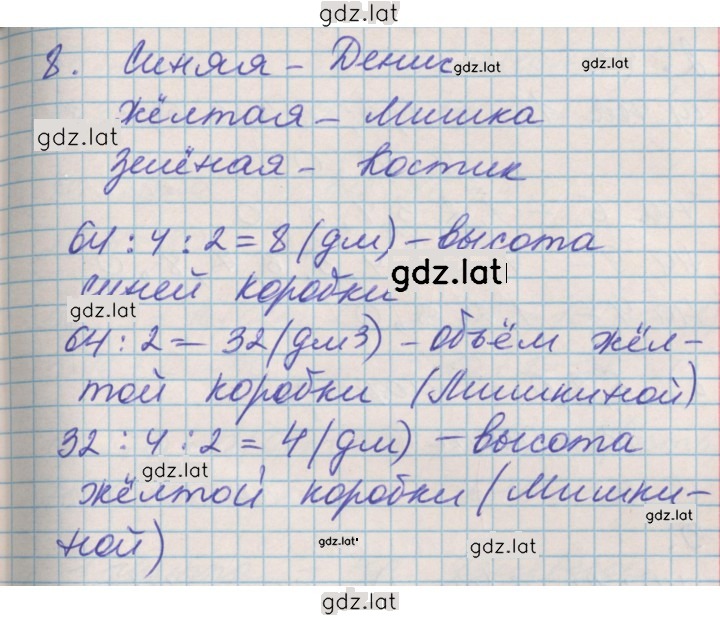 gdz.lat
8. Синяя – Денис gdz.lat gdz.lat
Жёлтая – Мишка
gdz.lat
Зелёная – Костик
64 : 4 : 2 = 8 (дм) – высота
gdz.lat
синей коробки
gdz.lat
64 : 2 = 32 (дм3) – объём жёл-
той коробки (Мишкиной)
32 : 4 : 2 = 4 (дм) – высота
gdz.lat
жёлтой коробки (Мишки-
gdz.lat
ной) gdz.lat gdz.lat
gdz.lat